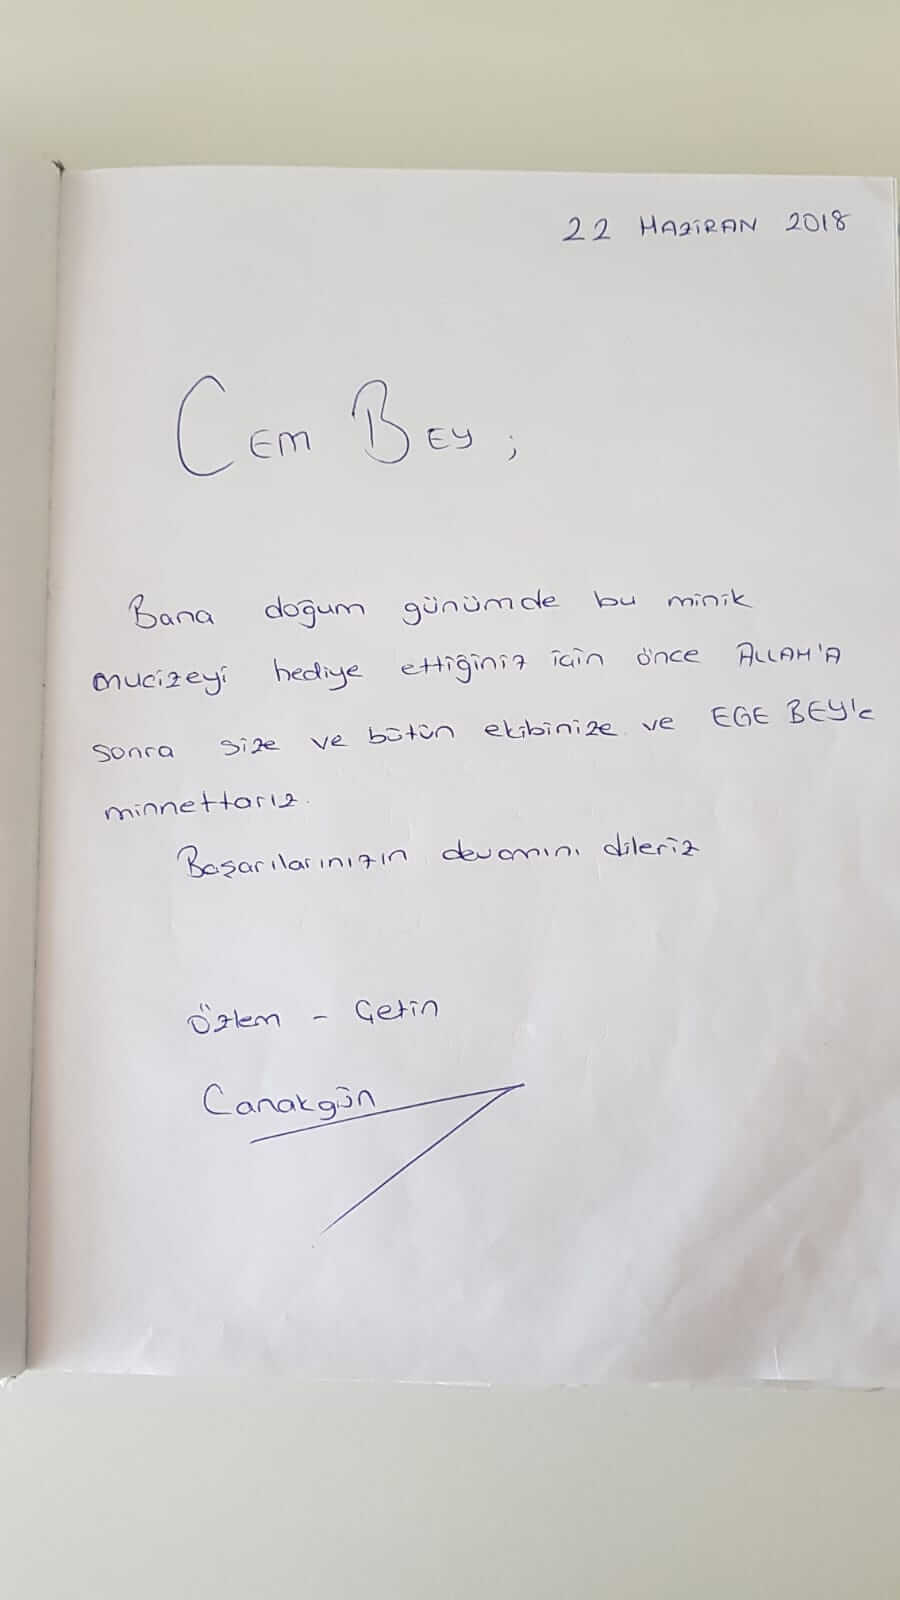 22 HAZİRAN 2018
CEM BEY;
Bana doğum günümde bu minik
mucizeyi hediye ettiğiniz için önce ALLAH'A
sonra size ve bütün ekibinize ve EGE BEY'e
minnettarız.
Başarılarınızın devamını dileriz
Özlem - Çetin
Canakgün